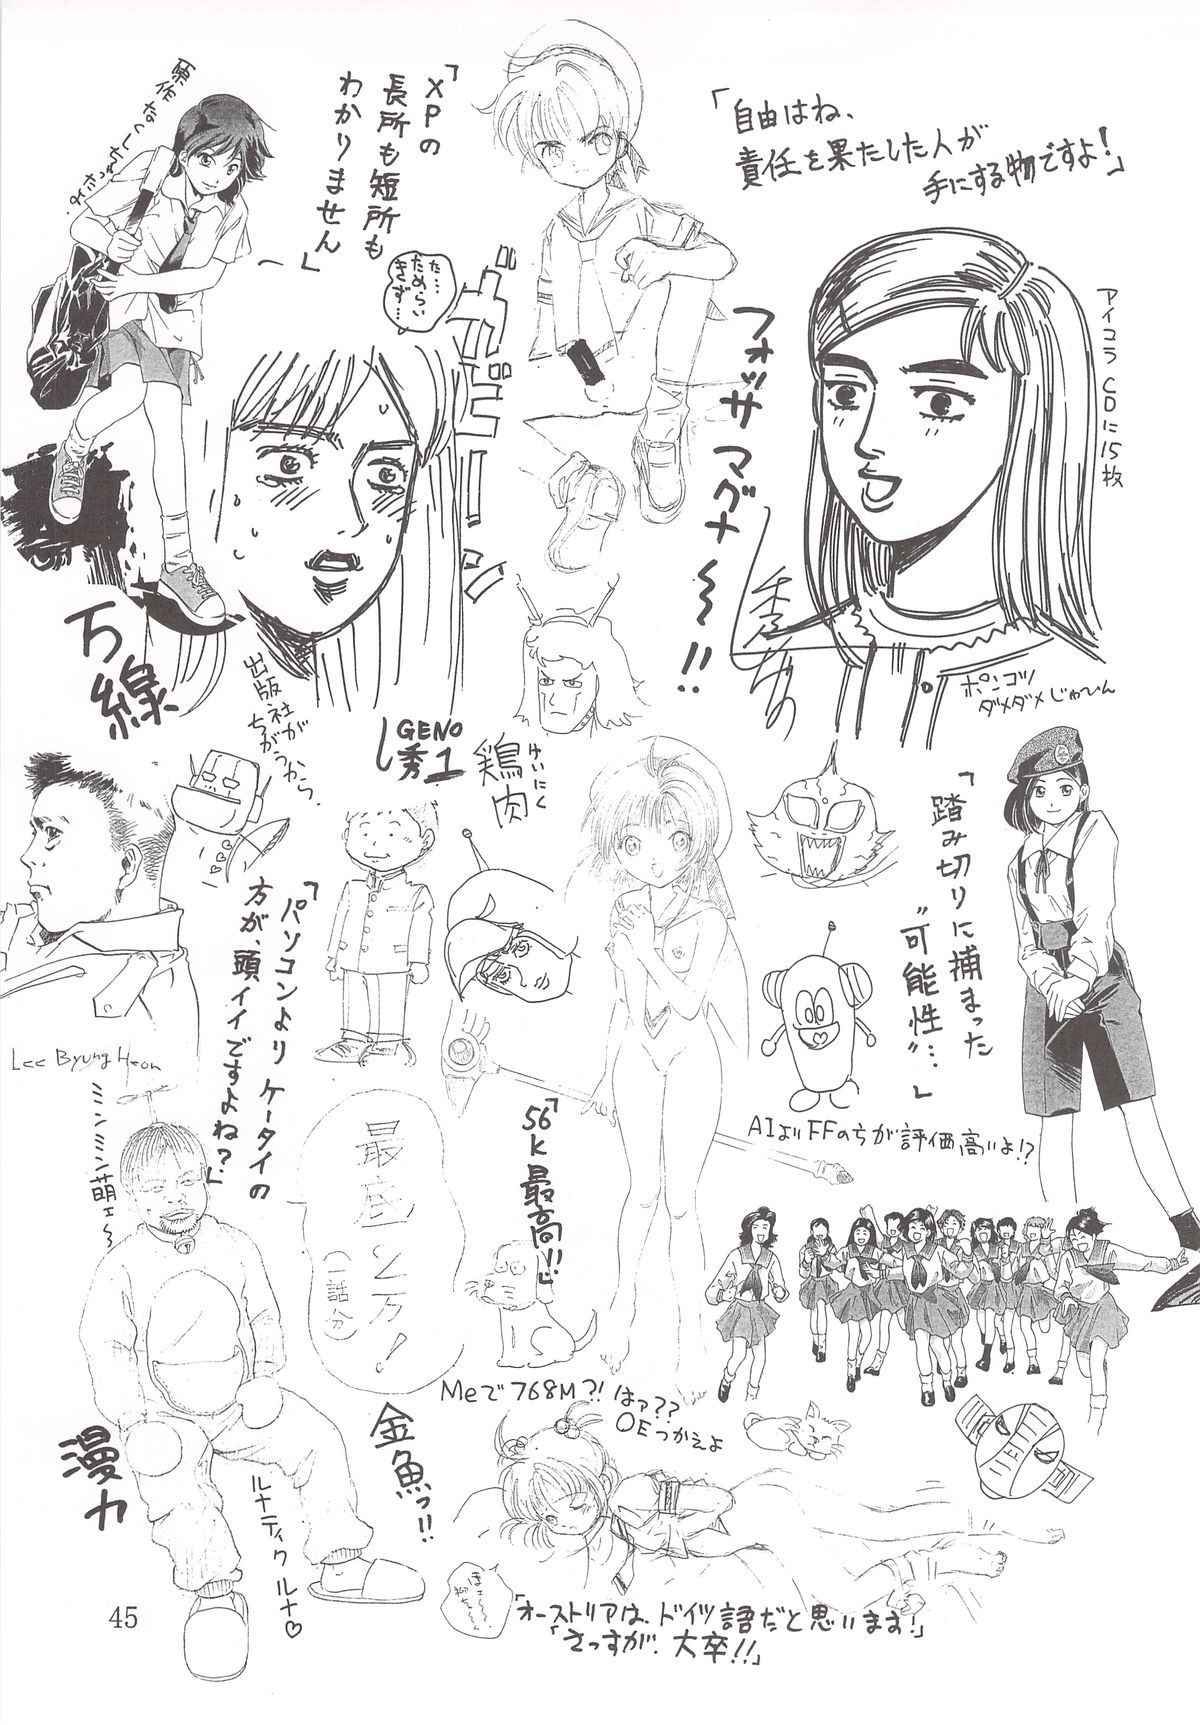 「XPの
長所も短所も
わかりません」
「自由はね、
責任を果たした人が
手にする物ですよ!」
た…
ためらい
きず…
フォッサマグナ〜!!
アイコラCDに15枚
ガビーン
万線
出版社が
ちがうから.
GENO
秀1
鶏肉
けいにく
ポンコツ
ダメダメじゃぴん
「踏み切りに捕まった
"可能性"…」
「パソコンよりケータイの
方が、頭イイですよね?」
Lee Byung Heon
AIよりFFのちが評価高いよ!?
ミンミンミン萌ェ〜
最底2万!
(一話分)
「56k最高!!」
Meで768M?! はァ??
OEつかえよ
金魚っ!!
漫力
ルナティクルナ♡
「オーストリアは、ドイツ語だと思います!」
「さっすが、大卒!!」
45